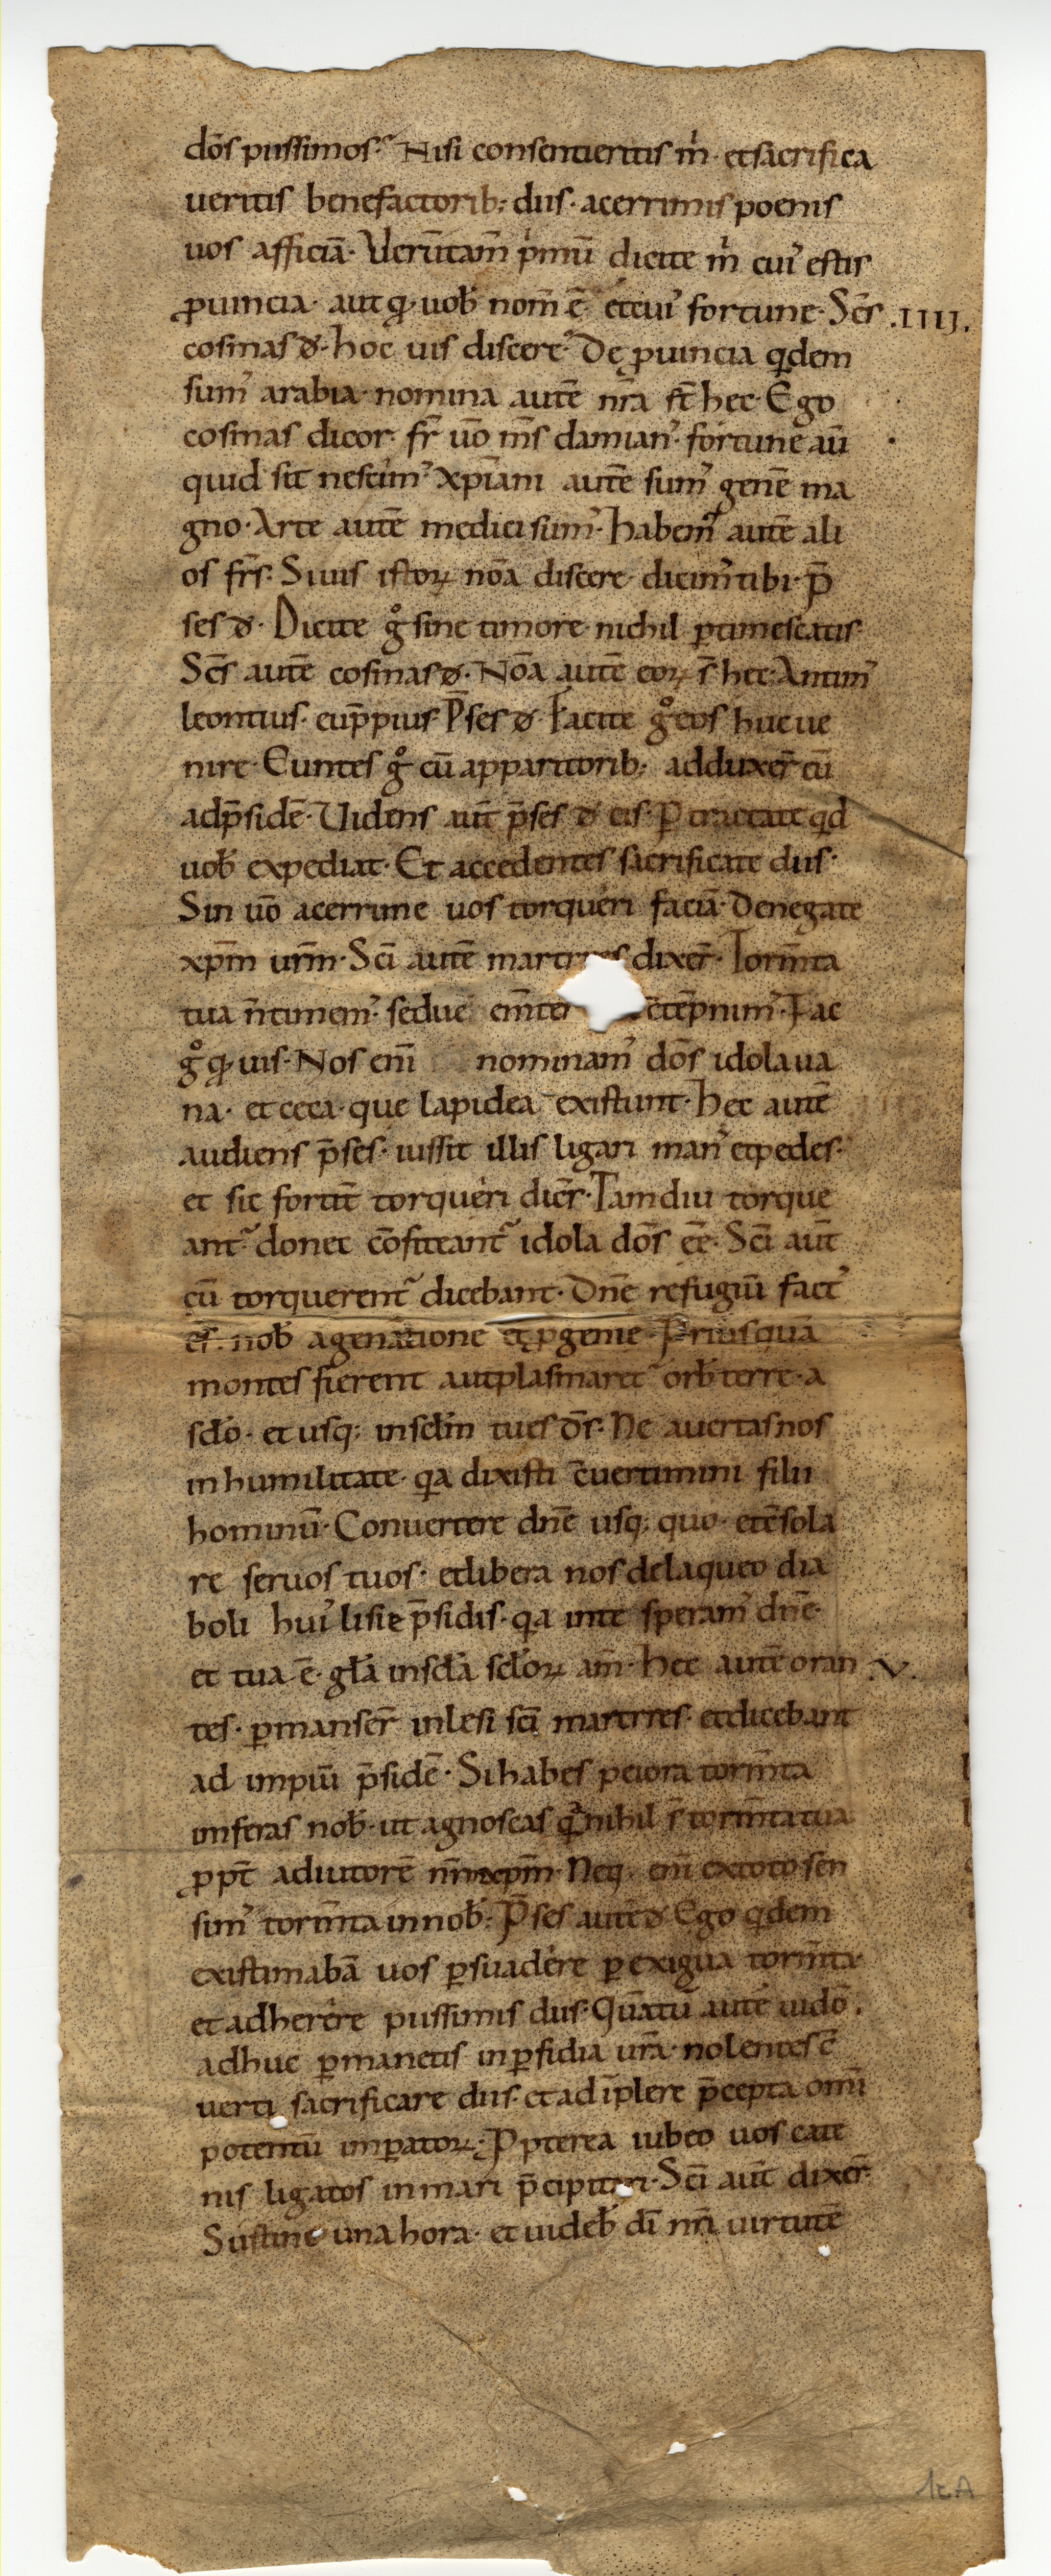 dōs piissimos. Nisi consentieritis m̄. et sacrifica
ueritis benefactorib; diis. acerrimis poenis
uos afficiā. Verūtam̄ pͥmū dicite m̄ cuiꝰ estis
ꝓuincia. aut qͥ uob̄ nom̄ ē. et cuiꝰ fortune. Sc̄s .IIII.
cosmas đ. hoc uis discere. De ꝓuincia qͥdem
sumꝰ arabia. nomina autē nr̄a st̄ hec. Ego
cosmas dicor. fr̄ ūo m̄s damianꝰ. fortune aū
quid sit nescimꝰ. xp̄iani autē sumꝰ genē ma
gno. Arte autē medici sumꝰ. habemꝰ autē ali
os fr̄s. Si uis istoꝝ nōa discere. dicimꝰ tibi. p̄
ses đ. Dicite gͦ sine timore. nichil ꝑtimescatis.
Sc̄s autē cosmas đ. Nōa autē eoꝝ s̄ hec. Antimꝰ
leontius. eup̄pius. P̄ses đ. Facite gͦ eos huc ue
nire. Euntes gͦ cū apparitorib; adduxer̄ eū
ad p̄sidē. Uidens aut̄ p̄ses đ eis. Ꝑtractate qͥd
uob̄ expediat. Et accedentes sacrificate diis.
Sin ūo acerrime uos torqueri faciā. Denegate
xp̄m ur̄m. Sc̄i autē martyres dixer̄. Torm̄ta
tua n̄ timemꝰ. Fac
gͦ qͥ uis. Nos eni̅ nominamꝰ dōs idola ua
na. et ceca. que lapidea existunt. hec autē
audiens p̄ses. iussit illis ligari manꝰ et pedes.
et sic fortit̄ torqueri dicēs. Tamdiu torque
ant᷑. donec cōfiteant᷑ idola dōs ēē. Sc̄i aut̄
cū torquerent᷑ dicebant. Dn̄e refugiū factꝰ
es nob̄ a generatione et ꝓgenie. Priusquā
montes fierent aut plasmaret᷑ orb̄ terre. a
scl̄o. et usq; in scl̄m tu es d̄s. Ne auertas nos
in humilitate. qͥa dixisti c̄uertimini filii
hominū. Conuertere dn̄e usq; quo. et c̄sola
re seruos tuos. et libera nos de laqueo dia
boli huiꝰ lisie p̄sidis. qͥa in te speramꝰ dn̄e.
et tua ē. gl̄a in scl̄a scl̄oꝝ am̄. hec autē oran .V.
tes. ꝑmanser̄ inlesi sc̄i martyres. et dicebant
ad impiū p̄sidē. Si habes peiora torm̄ta
inferas nob̄. ut agnoscas qͥa nihil s̄ torm̄ta tua
ꝓpt̄ adiutorē nr̄m xp̄m. Neq; eni̅ ex toto sen
simꝰ torm̄ta in nob̄. P̄ses autē đ. Ego qͥdem
existimabā uos ꝑsuadere ꝑ exigua torm̄ta.
et adherere piissimis diis. Quātū autē uideo.
adhuc ꝑmanetis in ꝑfidia ur̄a. nolentes c̄
uerti sacrificare diis. et adīplere p̄cepta omi
potentū imꝑatoꝝ. Ꝓpterea iubeo uos cate
nis ligatos in mari p̄cipitari. Sc̄i aut̄ dixer̄.
Sustine una hora. et uideb̄ dī nr̄i uirtutē